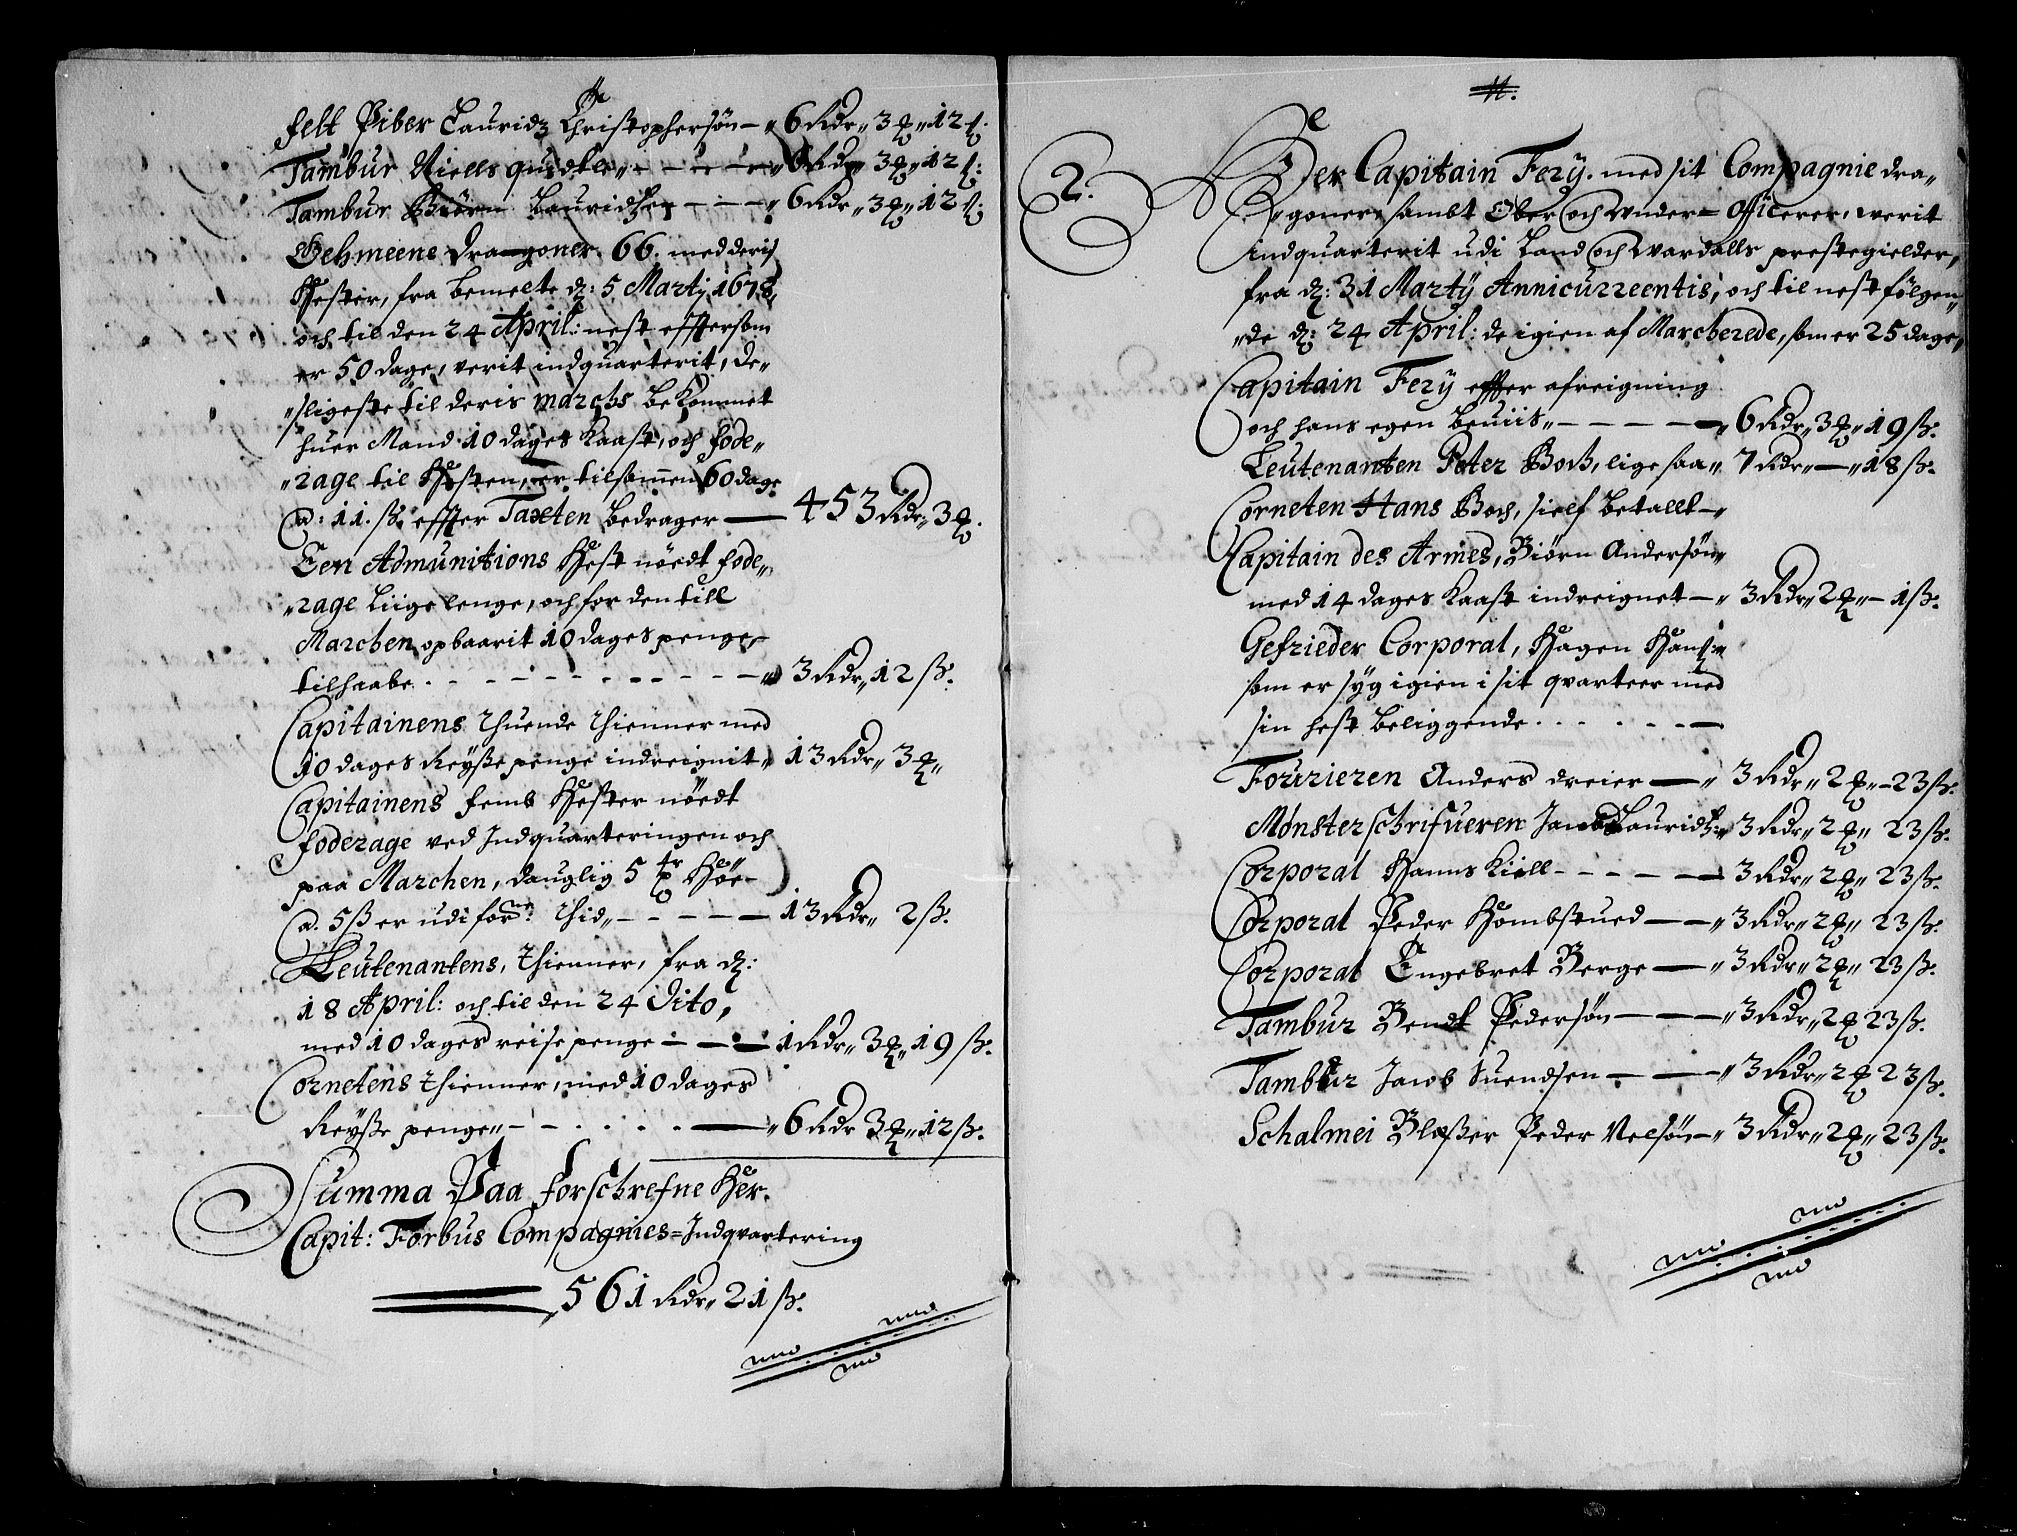 felt Piber Lauridz Christophersøn — „ 6 Rdr „ 3 ℔ „ 12 ß.
Tambur Niells qvedle „ - - - - „ 6 Rdr „ 3 ℔ „ 12 ß:
Tambur Biörn Lauridsen - - - „ 6 Rdr „ 3 ℔ „ 12 ß:
Gehmeene dragoner. 66. med deris
Hester, fra bemelte d: 5 Martij 1678,
och til den 24 April: nest effttersom
er 50 dage, verit indquarterit, de„
„sligeste til deris marchs bekommet
huer Mand 10 dages kaast, och fode„
„rage til Hesten, er tilsammen 60 dage
a: 11. ß. effter Taxten bedrager — 453 Rdr „ 3 ℔.
Een Admunitions Hest nöedt fode„
„rage liige lenge, och for den till
Marchen opbaarit 10 dages penge,
tilhaabe . - - - - - - - - - „ 3 Rdr „ 12 ß.
Capitainens thuende thienner med
10 dages Reyße penge indreignit „ 13 Rdr „ 3 ℔ „
Capitainens femb Hester nöedt
foderage ved Indquarteringen och
paa Marchen, dauglig 5 ℔r Höe
a. 5 ß er udi forne: thid „ - - - — 13 Rdr „ 2 ß.
Leutenantens, thienner, fra d:
18 April: och til den 24 Dito,
med 10 dages reise penge - — - — 1 Rdr „ 3 ℔ „ 19 ß.
Cornetens thienner, med 10 dages
Reyße penge „ - - . . . . — „ 6 Rdr 3 ℔ „ 12 ß.
Summa Paa forschrefne Her.
Capit: Forbus Compagnies = Indqvartering
561 Rdr „ 21 ß.
11.
2. Der Capitain Fery. med sit Compagnie dra„
„goner, sambt Ober och under = Officerer, werit
indquarterit udi Land och wardalls prestegielder,
fra d: 31 Martij Anni currentis, och til nest følgen„
„de d: 24 April: de igien af Marcherede, som er 25 dage,
Capitain Fery effter afreigning
och hans egen beviis „ - - - - — „ 6 Rdr „ 3 ℔ „ 19 ß.
Leutenanten Peter Boch, lige saa „ 7 Rdr „ — „ 18 ß.
Corneten Hans Boch, sielf betallt — „
Capitain des Armes, Biørn Andersøn „
med 14 dages kaast indreignet — „ 3 Rdr „ 2 ℔ „ - 1 ß.
Gefrieder Corporal, Hagen Hans:
som er syg igien i sit qvarteer med
sin hest beliggende . . . . . - - —
Fourieren Anders dreier — „ 3 Rdr „ 2 ℔ „ - 23 ß.
Mønsterschrifueren Jacob Lauridß: „ 3 Rdr „ 2 ℔ „ 23 ß.
Corporal Hanns Kiell - - - - — „ 3 Rdr „ 2 ℔ „ 23 ß.
Corporal Peder Hombstued — — „ 3 Rdr „ 2 ℔ „ 23 ß.
Corporal Engebret Berge — — „ 3 Rdr „ 2 ℔ „ 23 ß.
Tambur Bendt Pedersøn — — „ 3 Rdr „ 2 ℔ 23 ß.
Tambur Jacob Suendsen - — — „ 3 Rdr „ 2 ℔ 23 ß.
Schalmei Blaßer Peder Nelsøn — „ 3 Rdr „ 2 ℔ „ 23 ß.